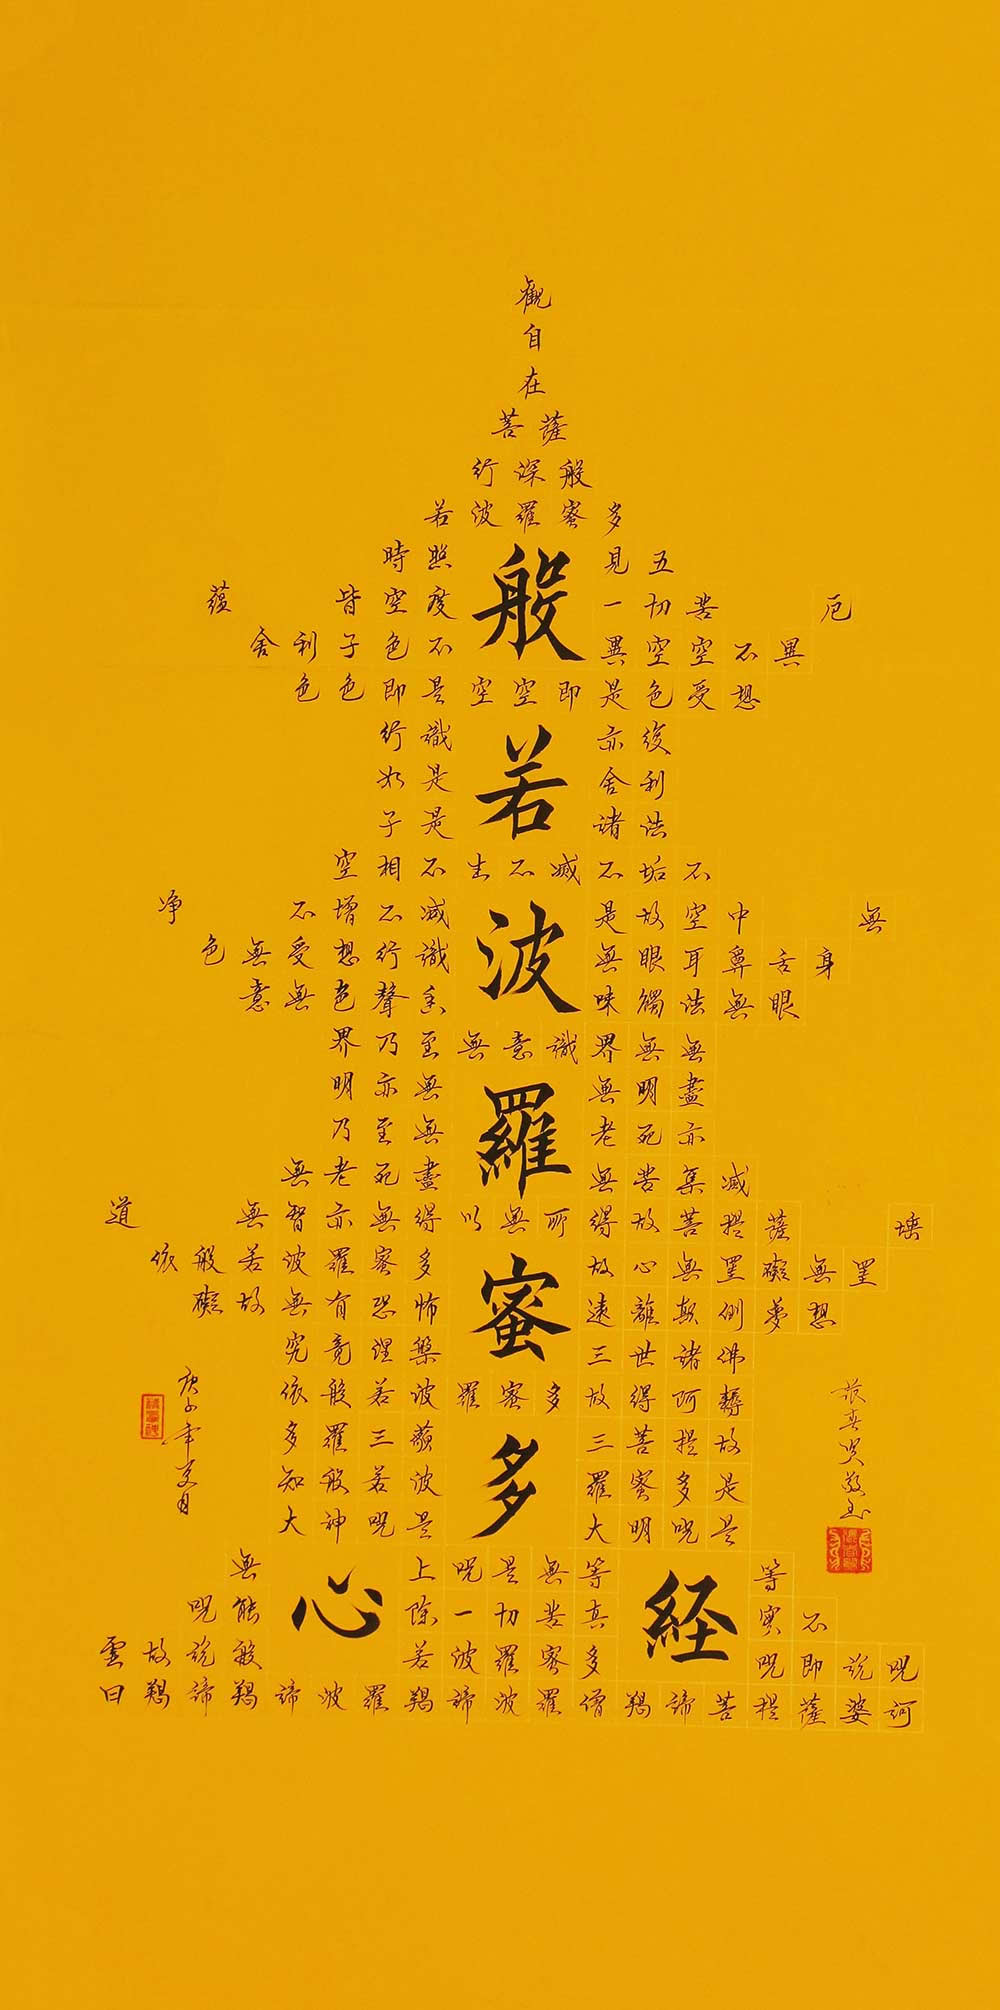 般若波羅蜜多心経
觀
自
在
菩薩
行深般
若波羅蜜多
時照見五
蘊皆空度一切苦厄
舍利子色不異空空不異
色色即是空空即是色受想
行識亦復
如是舍利
子是諸法
空相不生不滅不垢不
净不增不減是故空中無
色無受想行識無眼耳鼻舌身
意無色聲香味觸法無眼
界乃至無意識界無無
明亦無無明盡
乃至無老死亦
無老死盡無苦集滅
道無智亦無得以無所得故菩提薩埵
依般若波羅蜜多故心無罣礙無罣
礙故無有恐怖遠離顛倒夢想
究竟涅槃三世諸佛
依般若波羅蜜多故得阿耨
多羅三藐三菩提故
知般若波羅蜜多是
大神咒是大明咒是
無上咒是無等等
咒能除一切苦真實不
雲故說般若波羅蜜多咒即說咒
曰羯諦羯諦波羅羯諦波羅僧羯諦菩提薩婆訶
庚子年夏月
敬書